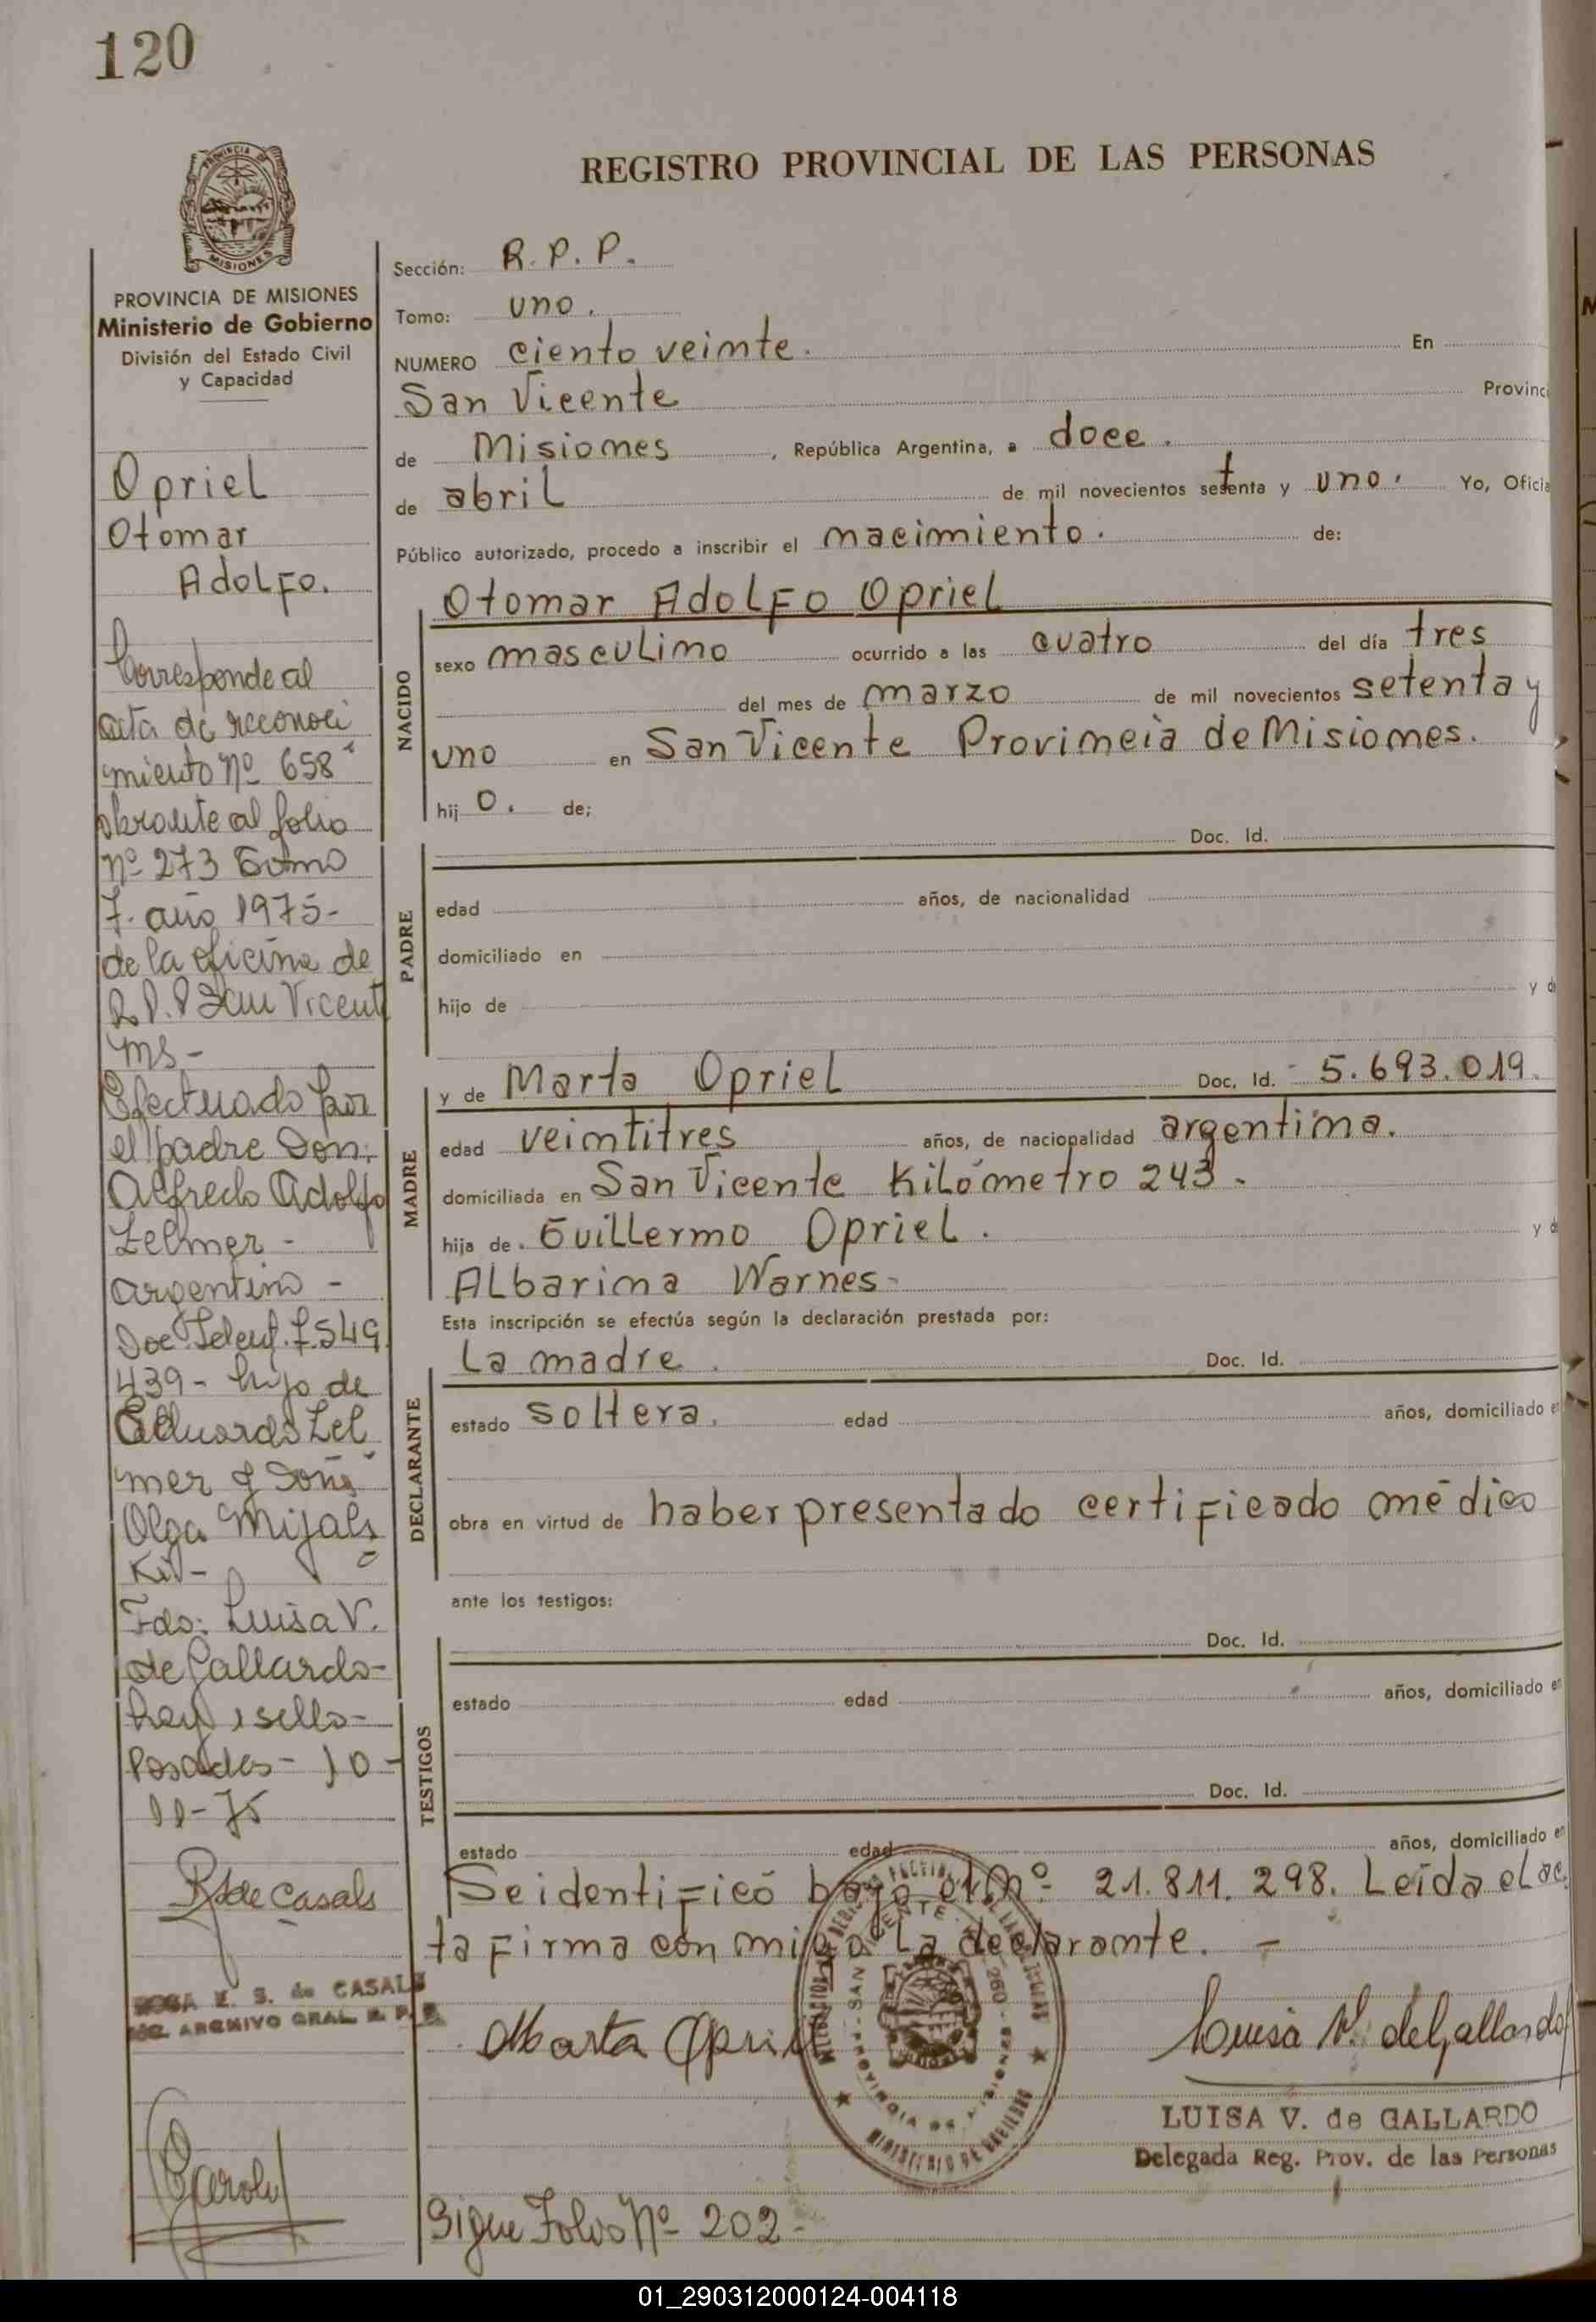 120
REGISTRO PROVINCIAL DE LAS PERSONAS
PROVINCIA DE MISIONES
Ministerio de Gobierno
División del Estado Civil
y Capacidad
Opriel
Otomar
Adolfo.
Corresponde al
acta de reconoci
miento Nº 658
obrante al folio
Nº 273 Tomo
7. año 1975-
de la oficina de
R.P.P San Vicente
Ms-
Efectuado por
el padre Don:
Alfredo Adolfo
Zelmer -
argentino -
Doc. Ident. 7.549.
439- hijo de
Eduardo Zel
mer y Doña
Olga Mijals
Ki-
Fdo: Luisa V.
de Gallardo-
hay 1 sello-
Posadas- 10-
11-75
R S de Casals
ROSA E. S. de CASALS
ARCHIVO GRAL. R. P. P.
Sección: R. P. P.
Tomo: uno.
NUMERO ciento veinte. En
San Vicente Provinci
de Misiones, República Argentina, a doce.
de abril de mil novecientos setenta y uno. Yo, Oficia
Público autorizado, procedo a inscribir el nacimiento. de:
NACIDO
Otomar Adolfo Opriel
sexo masculino ocurrido a las cuatro del día tres
del mes de marzo de mil novecientos setenta y
uno en San Vicente Provincia de Misiones.
hijo. de;
PADRE
Doc. Id.
edad años, de nacionalidad
domiciliado en
hijo de y d
MADRE
y de Marta Opriel Doc. Id. 5.693.019.
edad veintitres años, de nacionalidad argentina.
domiciliada en San Vicente Kilómetro 243.
hija de Guillermo Opriel. y d
Albarina Warnes-
Esta inscripción se efectúa según la declaración prestada por:
DECLARANTE
La madre. Doc. Id.
estado soltera. edad años, domiciliado en
obra en virtud de haber presentado certificado médico
ante los testigos:
TESTIGOS
Doc. Id.
estado edad años, domiciliado en
Doc. Id.
estado edad años, domiciliado en
Se identificó bajo el Nº 21.811.298. Leída el ac
ta firma con migo la declarante. -
Marta Opriel
Luisa V. de Gallardo
LUISA V. de GALLARDO
Delegada Reg. Prov. de las Personas
Sigue Folio Nº 202-
01_290312000124-004118